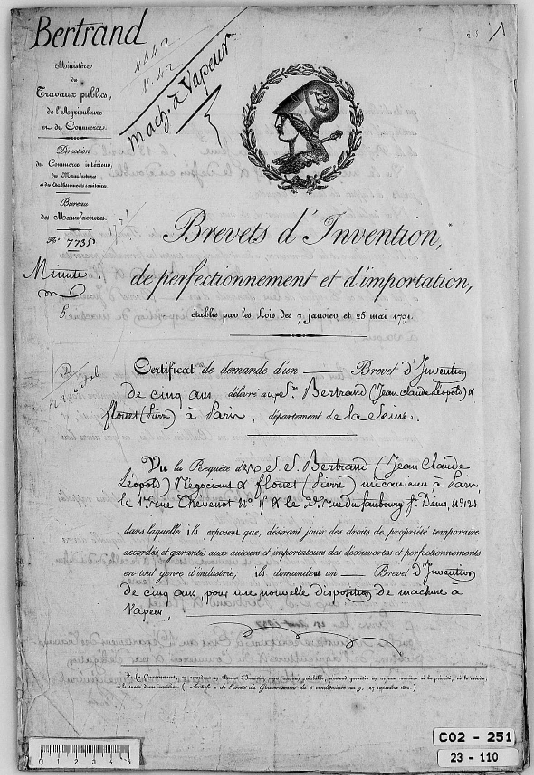 Bertrand
Mach. à Vapeur
1
Ministère
des
Travaux publics,
de l'Agriculture
et du Commerce.
Division
du Commerce intérieur,
des Manufactures
et des Etablissements sanitaires.
Bureau
des Manufactures.
N° 7735
Minute
5
Brevets d'Invention,
de perfectionnement et d'importation,
établis par les Lois des 7 janvier et 25 mai 1791.
Certificat de demande d'un Brevet d'Invention
de cinq ans délivré aux Srs Bertrand (Jean Claude Léopold) &
flouet (Pierre) à Paris, département de la Seine.
Vu la Requête des S. S. Bertrand (Jean Claude
Léopold) Négociant & flouet (Pierre) à Paris,
le 1er rue Thevenot N° & le 2e rue du faubourg St Denis, N° 121
dans laquelle ils exposent que, désirant jouir des droits de propriété temporaire
accordés et garantis aux auteurs et importateurs des découvertes et perfectionnements
en tout genre d'industrie, ils demandent un Brevet d'Invention
de cinq ans pour une nouvelle disposition de machine à
Vapeur,
C02 - 251
23 - 110